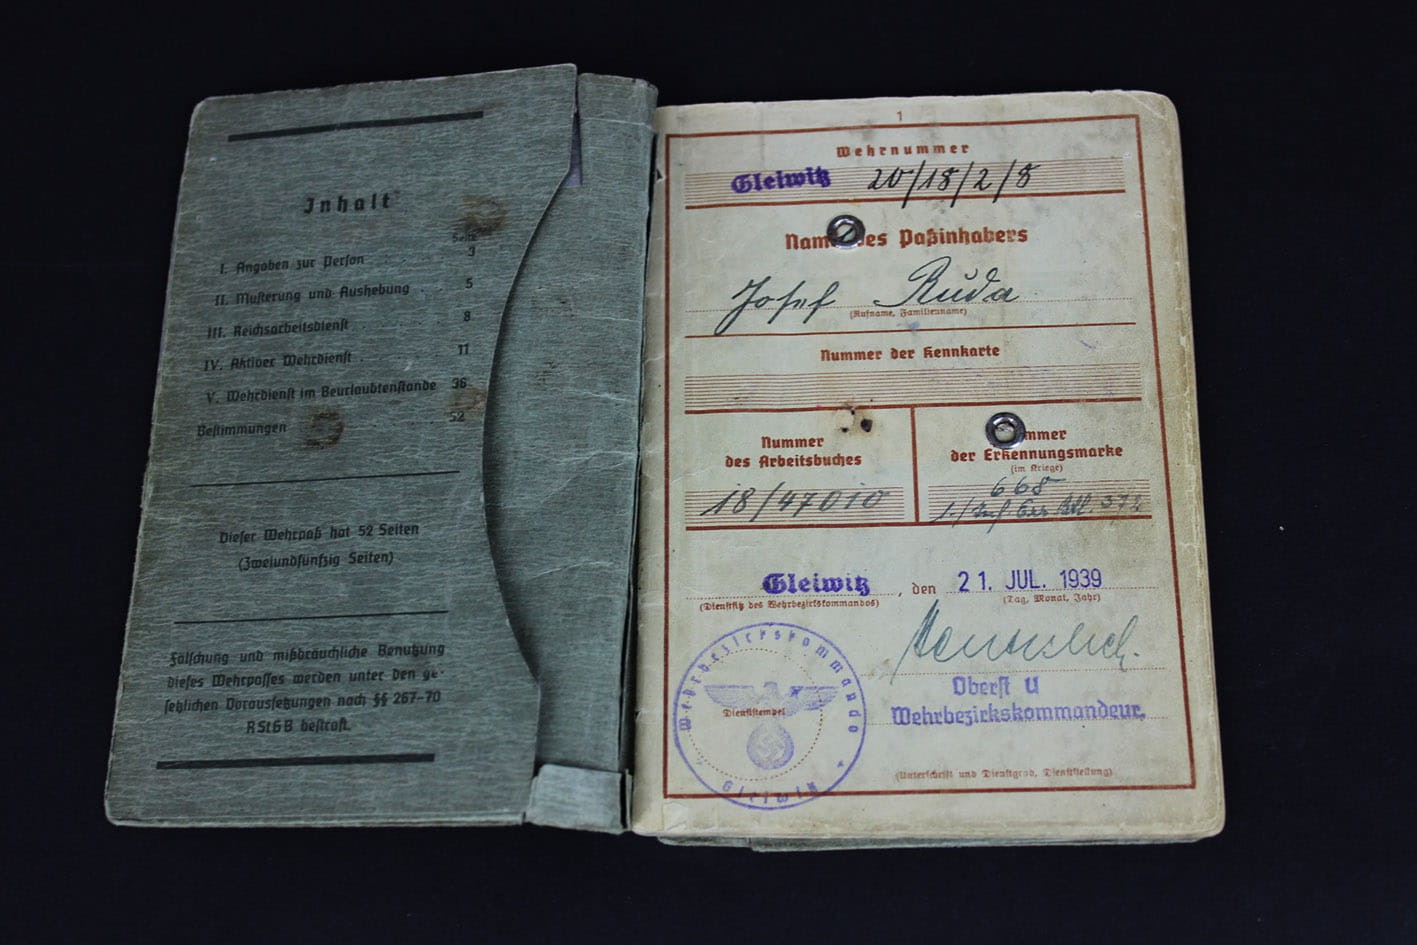 Inhalt
Seite
I. Angaben zur Person 3
II. Musterung und Aushebung 5
III. Reichsarbeitsdienst 8
IV. Aktiver Wehrdienst 11
V. Wehrdienst im Beurlaubtenstande 36
Bestimmungen 52
Dieser Wehrpaß hat 52 Seiten
(Zweiundfünfzig Seiten)
Fälschung und mißbräuchliche Benutzung
dieses Wehrpasses werden unter den ge-
setzlichen Voraussetzungen nach §§ 267-70
RStGB bestraft.
1
Wehrnummer
Gleiwitz 20/18/2/8
Name des Paßinhabers
Josef Ruda
(Rufname, Familienname)
Nummer der Kennkarte
Nummer
des Arbeitsbuches
18/47010
Nummer
der Erkennungsmarke
(im Kriege)
668
Gleiwitz, den 21. JUL. 1939
(Dienstsitz des Wehrbezirkskommandos) (Tag, Monat, Jahr)
Wehrbezirkskommando
Dienststempel
Gleiwitz
Oberst u
Wehrbezirkskommandeur.
(Unterschrift und Dienstgrad, Dienststellung)